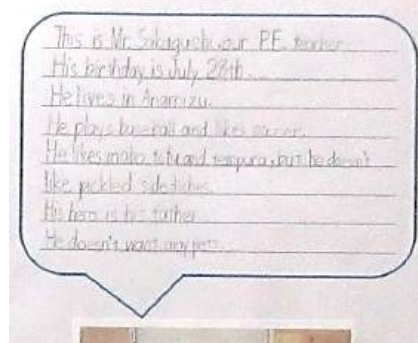 This is Mr. Sakaguchi, our P.E. teacher.
His birthday is July 28th.
He lives in Anamizu.
He plays baseball and likes soccer.
He likes mabo tofu and tempura, but he doesn't
like pickled side dishes.
His hero is his father.
He doesn't want any pets.